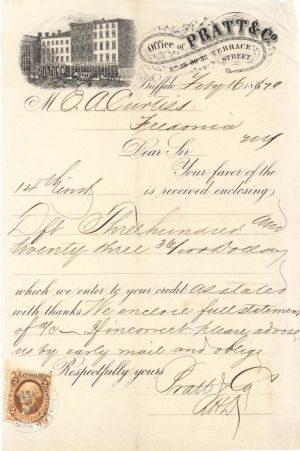 Office of PRATT & Co
Nos 28. 30. 32 TERRACE STREET.
Buffalo Feby 16 1870
M E. A. Curtiss
Fredonia
NY
Dear Sir
Your favor of the
14th inst is received enclosing
Dft Three hundred and
twenty three 36/100 Dollars
which we enter to your credit as stated
with thanks We enclose full statement
of a/c If incorrect please advise
us by early mail and oblige
Respectfully yours
Pratt & Co